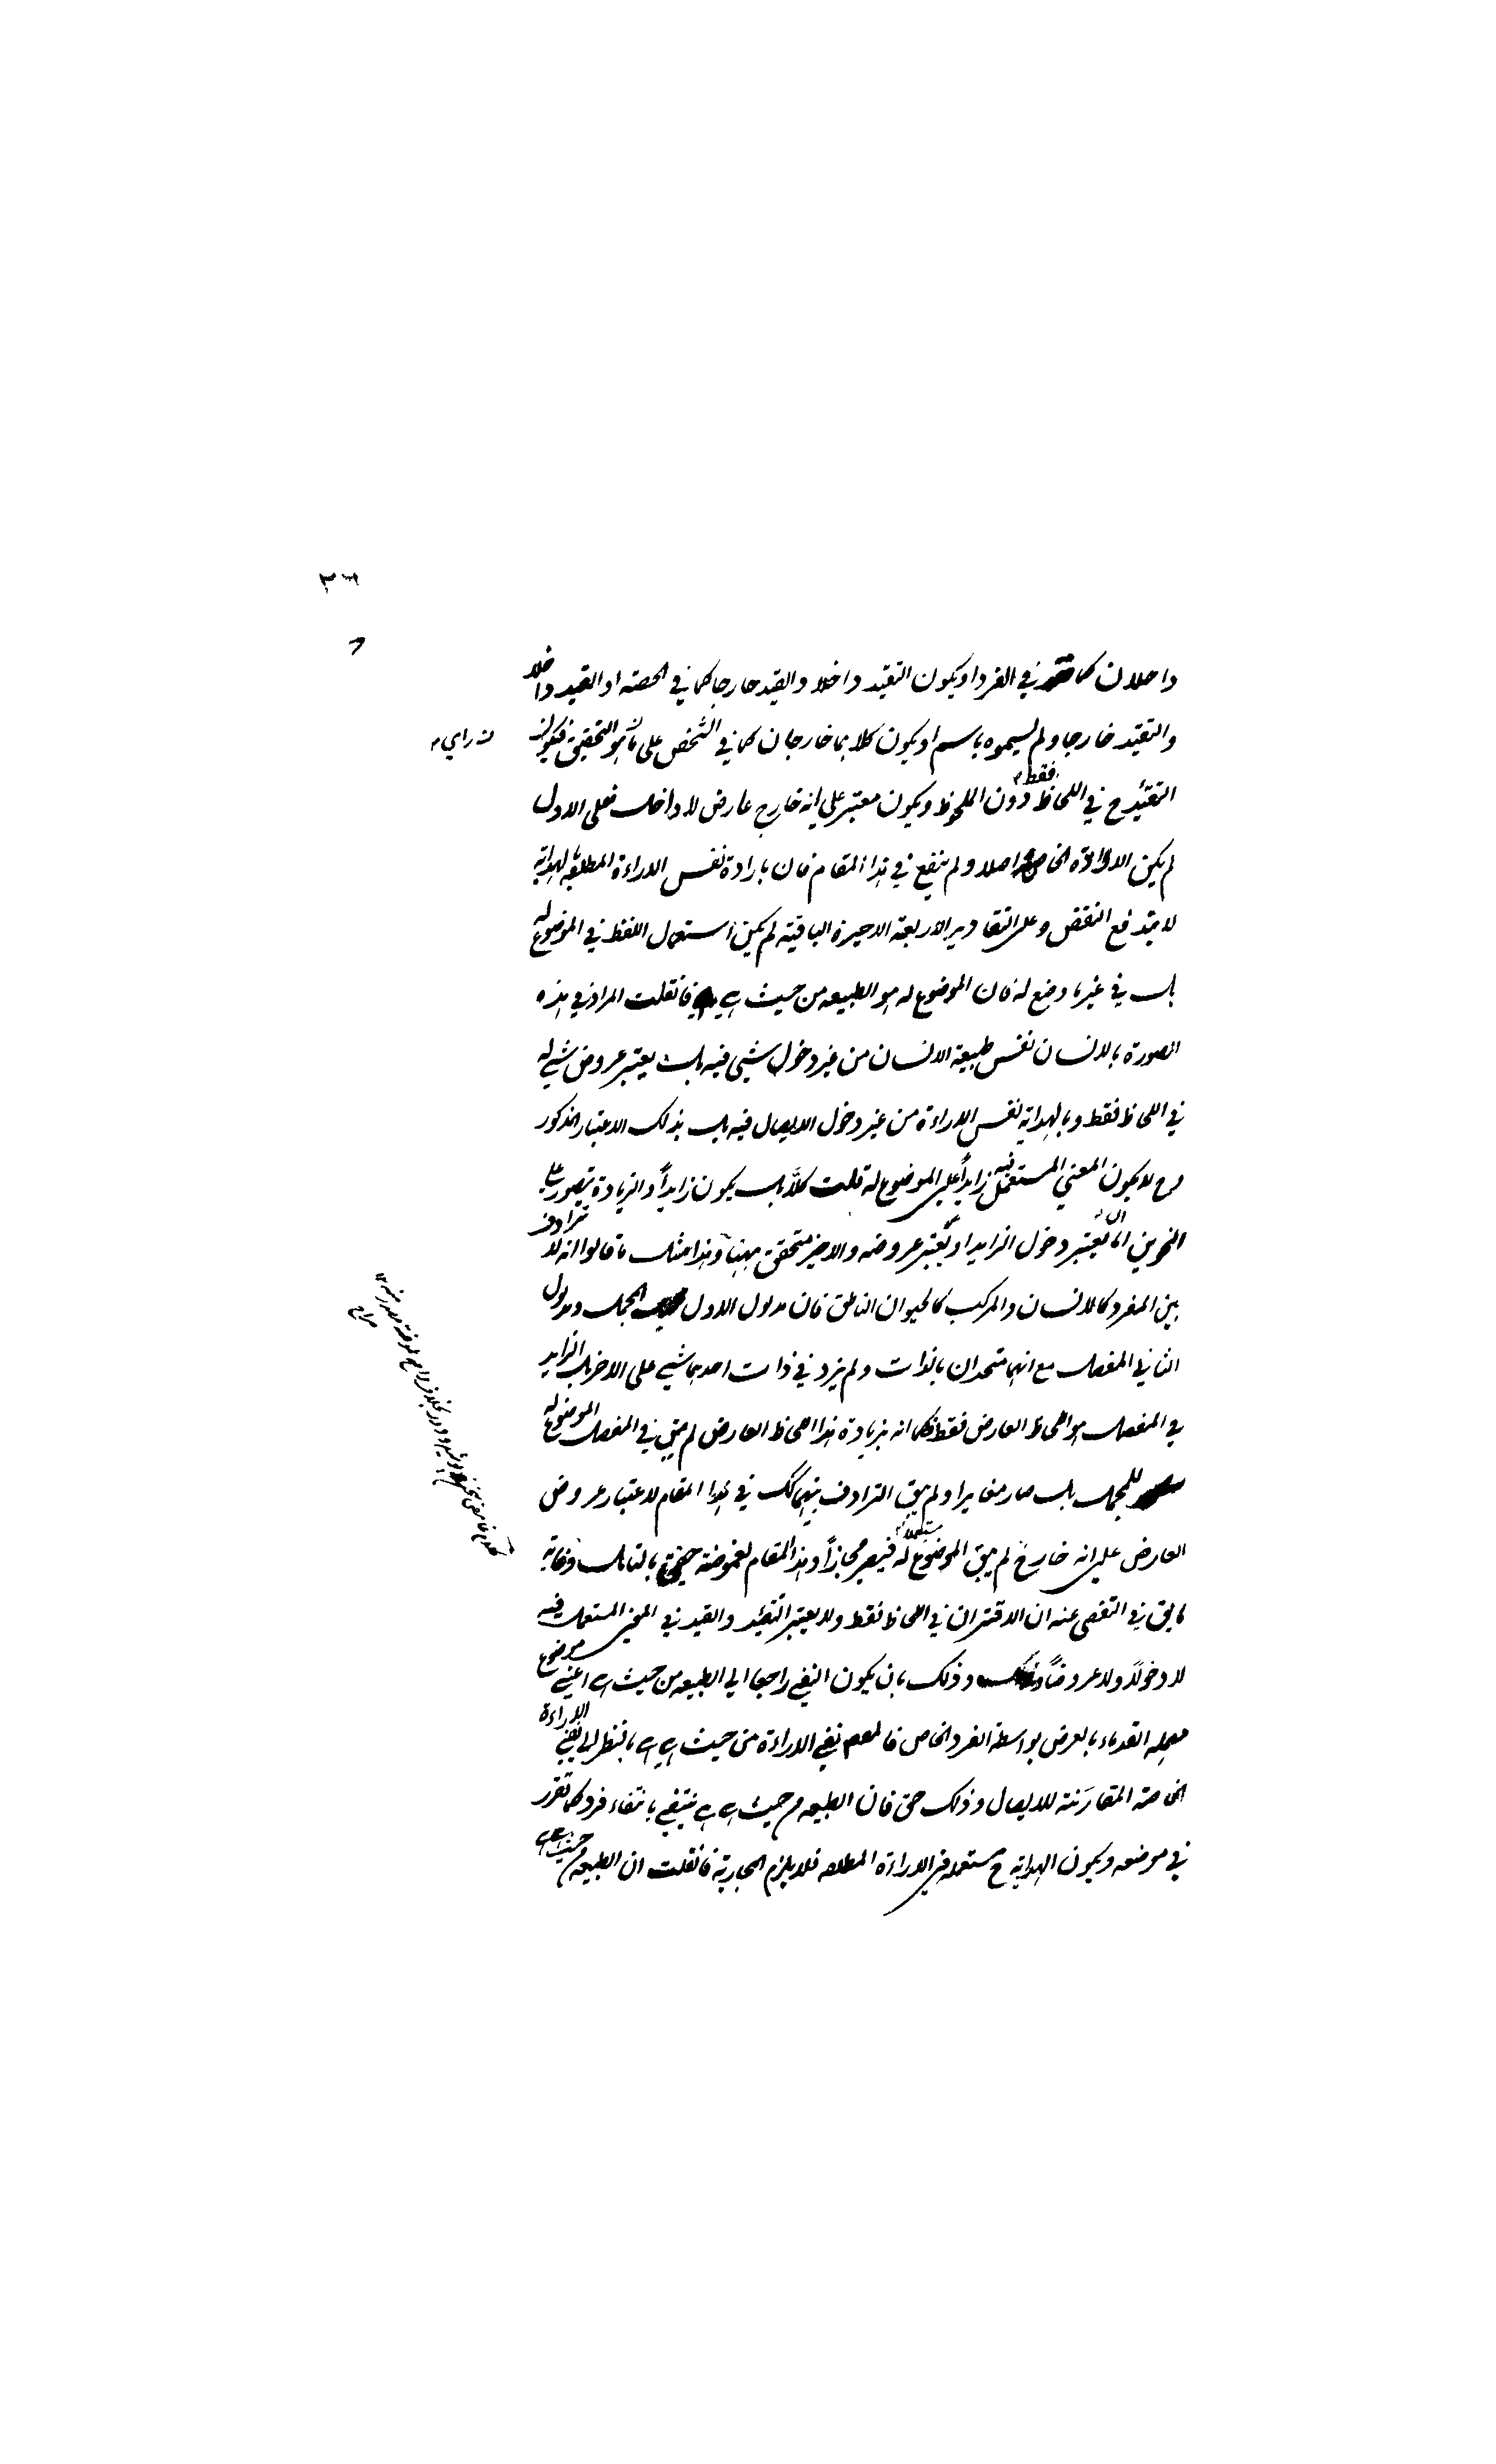 ٣٦
داخلان كما في الفرد او يكون التقيد داخلا والقيد خارجا كما في الحصة او القيد داخلا
والتقيد خارجا ولم يسموه باسم او يكون كلاهما خارجان كما في الشخص على ما هو التحقيق فيكون
ن راي
التقيد ح في اللحاظ فقط دون الملحوظ ويكون معتبر على انه خارج عارض لا داخل فعلى الاول
لم يكن الاراءة الخاصة اصلا ولم ينفع في هذا المقام فان بارادة نفس الاراءة المطلقة بالهداية
لا يندفع النقض وعلى التقادير الاربعة الاخيرة الباقية لم يكن استعمال اللفظ في الموضوع له
بل في غير ما وضع له فان الموضوع له هو الطبيعة من حيث هي هي فان قلت المراد في هذه
الصورة بالانسان نفس طبيعة الانسان من غير دخول شيئ فيه بل يعتبر عروض شيئ له
في اللحاظ فقط وبالهداية نفس الاراءة من غير دخول الايصال فيه بل بذلك الاعتبار المذكور
وح لا يكون المعنى المستعمل فيه زايداً على الموضوع له قلت كلّا بل يكون زايداً والزيادة يتصور على
النحوين اما ان يعتبر دخول الزايد او يعتبر عروضه والاخير متحقق ههنا وهذا مثل ما قالوا انه لا ترادف
بين المفرد كالانسان والمركب كالحيوان الناطق فان مدلول الاول المجمل ومدلول
الثاني المفصل مع انهما متحدان بالذات ولم يزد في ذات احدهما شيئ على الاخر بل الزايد
في المفصل هو اللحاظ العارض فقط فكما انه بزيادة هذا اللحاظ العارض لم يبق في المفصل الموضوع له
للمجمل بل صار مغايرا ولم يبق الترادف بينهما كك في هذا المقام لاعتبار عروض
العارض على انه خارج لم يبق الموضوع له مستعملا فيصير مجازاً وهذا المقام لغموضته حقيق بالتامل وغاية
ما يق في التفصى عنه ان الاقتران في اللحاظ فقط ولا يعتبر التقيد والقيد في المعنى المستعمل فيه
لا دخولاً ولا عروضاً وذلك بان يكون النفي راجعا الي الطبيعة من حيث هي اعني موضوع
مهملة القدماء بالعرض بواسطة الفرد الخاص فالمعدوم نفي الاراءة من حيث هي هي بالنظر الى نفي الاراءة
الخاصة المقارنة للايصال وذلك حق فان الطبيعة من حيث هي هي ينتفي بانتفاء فرد كما تقرر
في موضعه ويكون الهداية ح مستعملة في الاراءة المطلقة فلا يلزم المجازية فان قلت ان الطبيعة من حيث هي هي